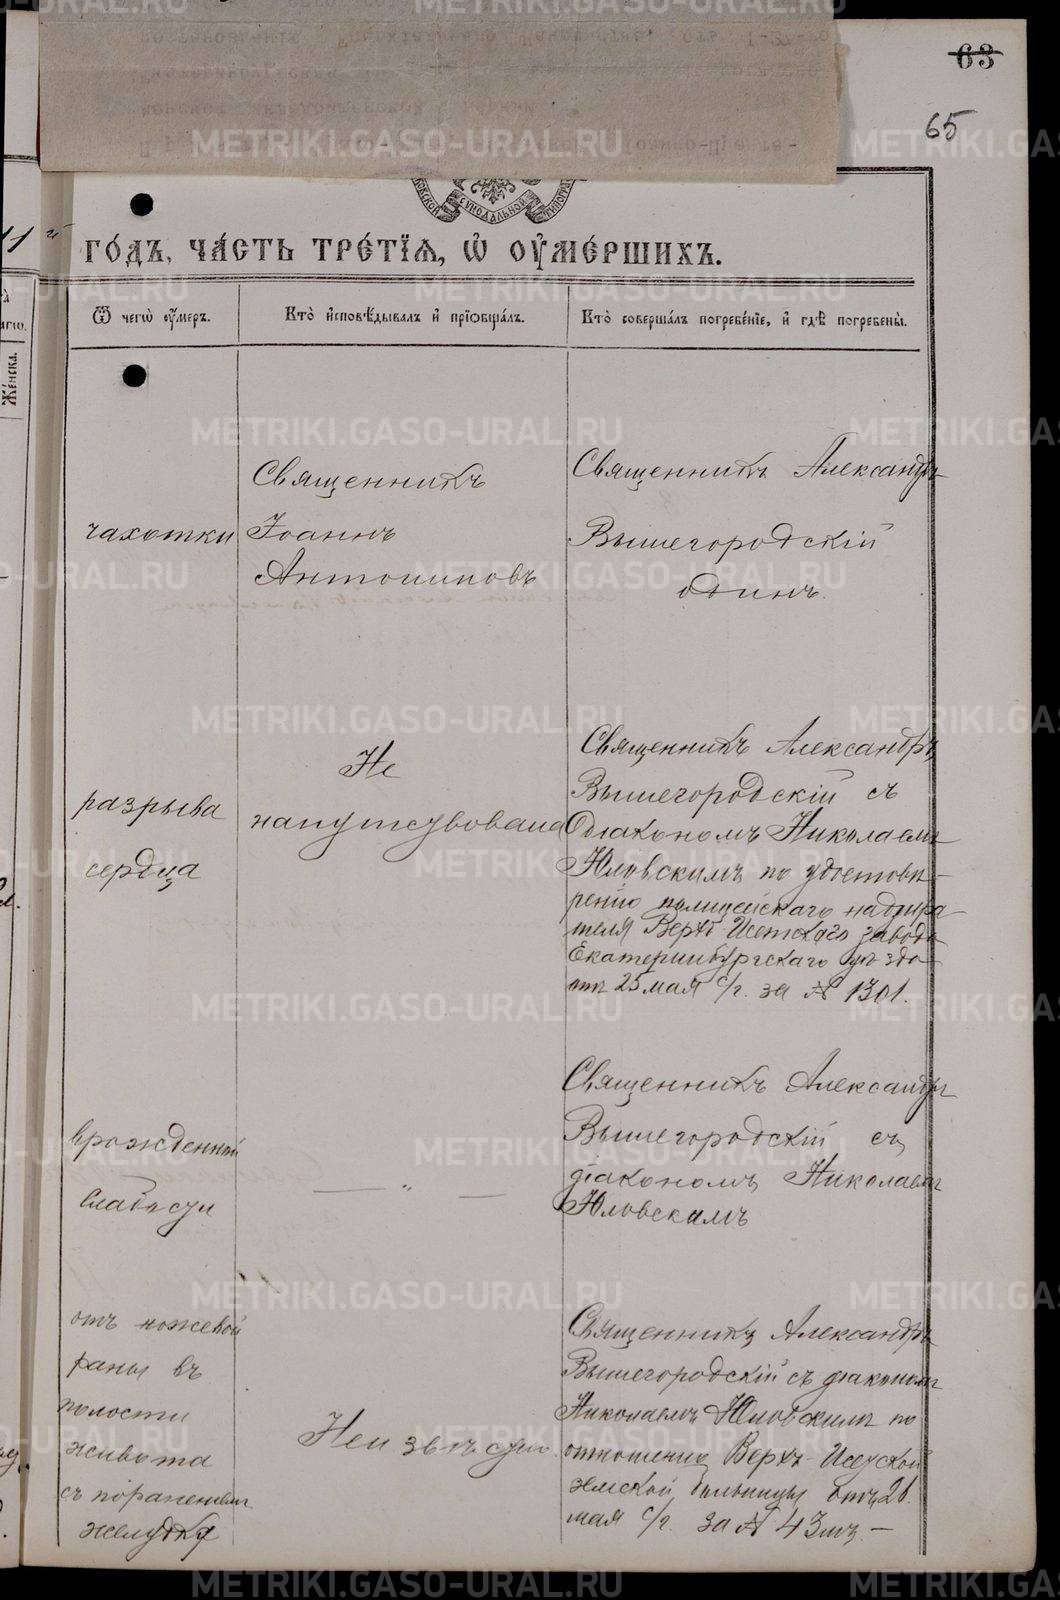 METRIKI.GASO-URAL.RU
63
65
СѴНОДАЛЬНОЙ
11
го́дъ, ча́сть тре́тїѧ, ѡ҆ оу҆ме́ршихъ.
Ѿ чегѡ̀ оу҆́меръ.
Кто̀ и҆сповѣ́дывалъ и҆ прїѡбща́лъ.
Кто̀ соверша́лъ погребе́нїе, и҆ гдѣ̀ погребены̀.
Же́нска.
чахотки
Священникъ
Іоаннъ
Антониновъ
Священникъ Александръ
Вышегородскій
одинъ.
разрыва
сердца
Не
напутствована
Священникъ Александръ
Вышегородскій съ
діакономъ Николаемъ
Юловскимъ по удостовѣ-
ренію полицейскаго надзира
теля Верхъ-Исетскаго завода
Екатеринбургскаго уѣзда
отъ 25 мая с/г. за № 1301.
врожденной
слабости
— " —
Священникъ Александръ
Вышегородскій съ
діакономъ Николаемъ
Юловскимъ
отъ ножевой
раны въ
полости
живота
съ пораненіем
желудка
Неизвѣстно.
Священникъ Александръ
Вышегородскій съ діакономъ
Николаемъ Юловскимъ по
отношенію Верхъ-Исетской
земской больницы отъ 26
мая с/г. за № 43мъ —